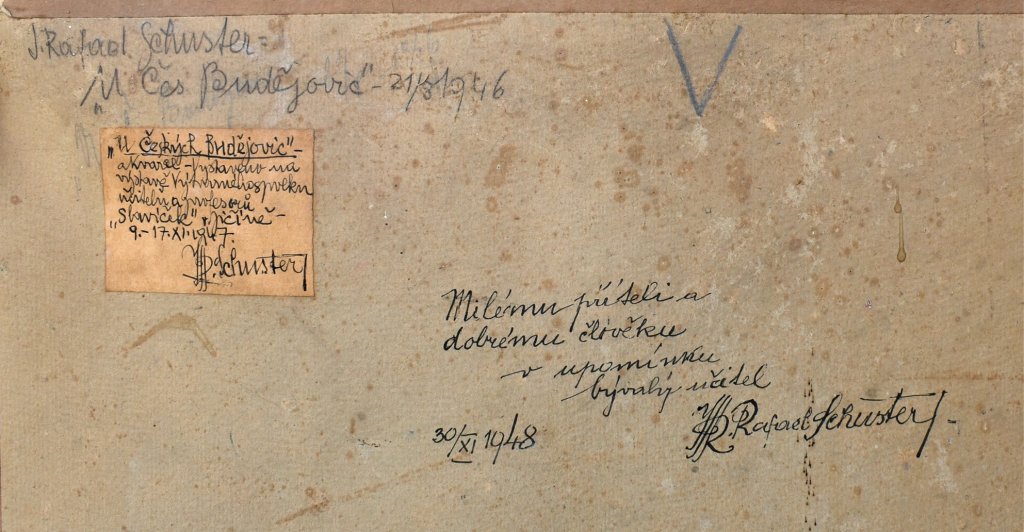 J. Rafael Schuster =
"U Čes Budějovic" - 21/8 1946
V
"U Českých Budějovic" -
akvarel - vystaveno na
výstavě Výtvarného spolku
učitelů a profesorů
"Slavíček" v Jičíně -
9. - 17. XI. 1947.
JR. Schuster
Milému příteli a
dobrému člověku
v upomínku
bývalý učitel
JR. Rafael Schuster -
30/XI 1948